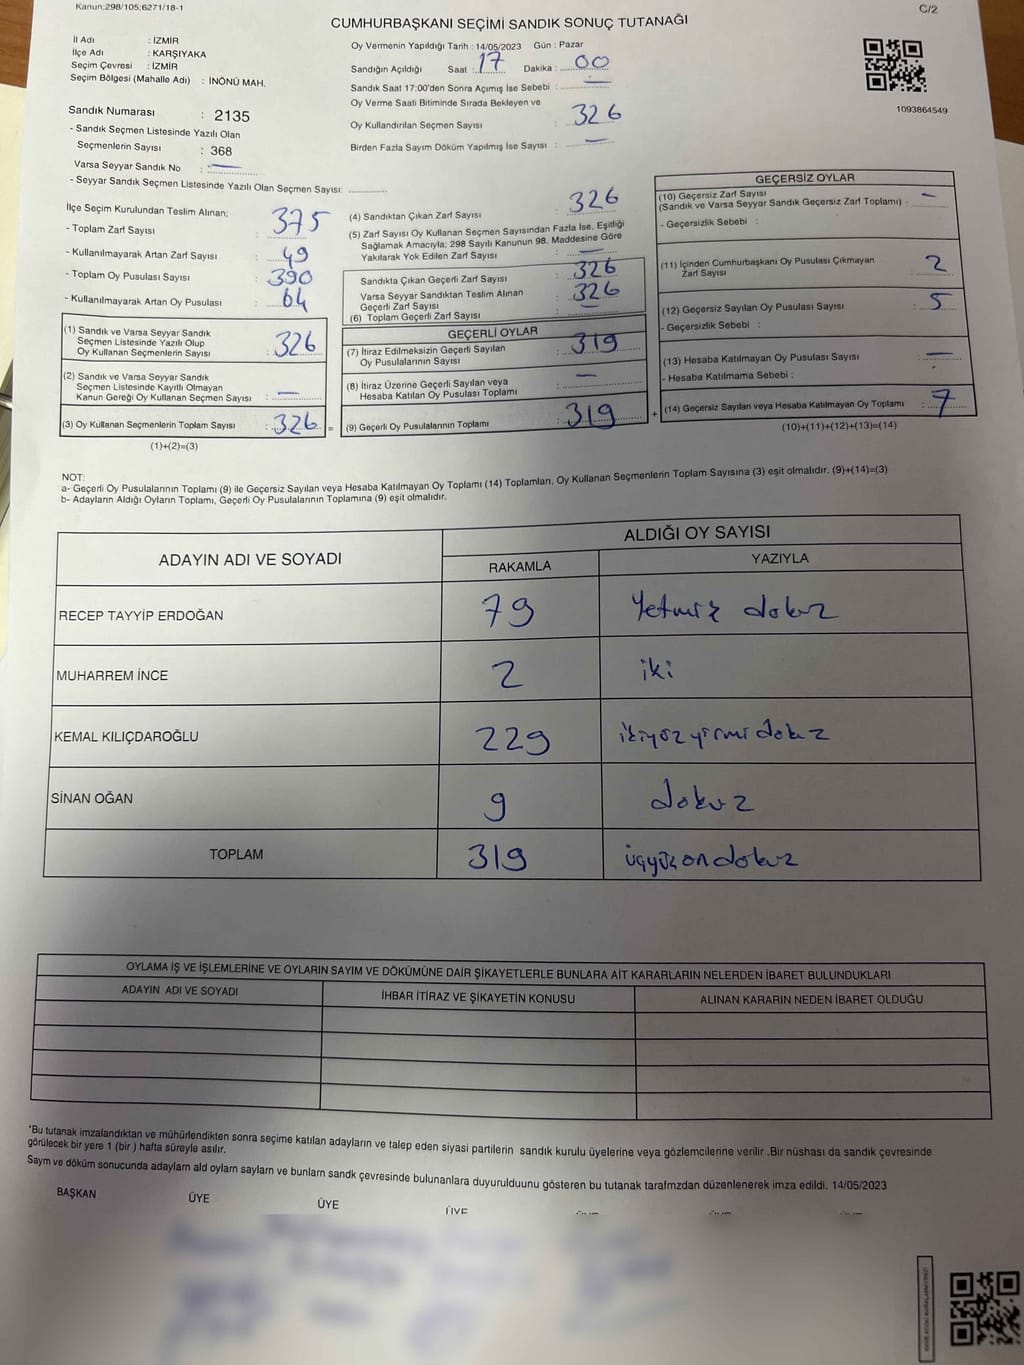 Kanun;298/105;6271/18-1
C/2
CUMHURBAŞKANI SEÇİMİ SANDIK SONUÇ TUTANAĞI
İl Adı : İZMİR
İlçe Adı : KARŞIYAKA
Seçim Çevresi : İZMİR
Seçim Bölgesi (Mahalle Adı) : İNÖNÜ MAH.
Oy Vermenin Yapıldığı Tarih : 14/05/2023 Gün : Pazar
Sandığın Açıldığı Saat : 17 Dakika : 00
Sandık Saat 17:00'den Sonra Açımış İse Sebebi : —
Oy Verme Saati Bitiminde Sırada Bekleyen ve
Oy Kullandırılan Seçmen Sayısı : 326
Birden Fazla Sayım Döküm Yapılmış İse Sayısı : —
1093864549
Sandık Numarası : 2135
- Sandık Seçmen Listesinde Yazılı Olan
Seçmenlerin Sayısı : 368
Varsa Seyyar Sandık No : —
- Seyyar Sandık Seçmen Listesinde Yazılı Olan Seçmen Sayısı: ............
İlçe Seçim Kurulundan Teslim Alınan;
- Toplam Zarf Sayısı : 375
- Kullanılmayarak Artan Zarf Sayısı : 49
- Toplam Oy Pusulası Sayısı : 390
- Kullanılmayarak Artan Oy Pusulası : 64
(1) Sandık ve Varsa Seyyar Sandık
Seçmen Listesinde Yazılı Olup
Oy Kullanan Seçmenlerin Sayısı : 326
(2) Sandık ve Varsa Seyyar Sandık
Seçmen Listesinde Kayıtlı Olmayan
Kanun Gereği Oy Kullanan Seçmen Sayısı : —
(3) Oy Kullanan Seçmenlerin Toplam Sayısı : 326 =
(1)+(2)=(3)
(4) Sandıktan Çıkan Zarf Sayısı : 326
(5) Zarf Sayısı Oy Kullanan Seçmen Sayısından Fazla İse, Eşitliği
Sağlamak Amacıyla; 298 Sayılı Kanunun 98. Maddesine Göre
Yakılarak Yok Edilen Zarf Sayısı : —
Sandıkta Çıkan Geçerli Zarf Sayısı : 326
Varsa Seyyar Sandıktan Teslim Alınan : 326
Geçerli Zarf Sayısı
(6) Toplam Geçerli Zarf Sayısı : —
GEÇERLİ OYLAR
(7) İtiraz Edilmeksizin Geçerli Sayılan : 319
Oy Pusulalarının Sayısı
(8) İtiraz Üzerine Geçerli Sayılan veya : —
Hesaba Katılan Oy Pusulası Toplamı
(9) Geçerli Oy Pusulalarının Toplamı : 319 +
GEÇERSİZ OYLAR
(10) Geçersiz Zarf Sayısı
(Sandık ve Varsa Seyyar Sandık Geçersiz Zarf Toplamı) : —
- Geçersizlik Sebebi :
(11) İçinden Cumhurbaşkanı Oy Pusulası Çıkmayan
Zarf Sayısı : 2
(12) Geçersiz Sayılan Oy Pusulası Sayısı : 5
- Geçersizlik Sebebi :
(13) Hesaba Katılmayan Oy Pusulası Sayısı : —
- Hesaba Katılmama Sebebi :
(14) Geçersiz Sayılan veya Hesaba Katılmayan Oy Toplamı : 7
(10)+(11)+(12)+(13)=(14)
NOT:
a- Geçerli Oy Pusulalarının Toplamı (9) ile Geçersiz Sayılan veya Hesaba Katılmayan Oy Toplamı (14) Toplamları, Oy Kullanan Seçmenlerin Toplam Sayısına (3) eşit olmalıdır. (9)+(14)=(3)
b- Adayların Aldığı Oyların Toplamı, Geçerli Oy Pusulalarının Toplamına (9) eşit olmalıdır.
ADAYIN ADI VE SOYADI ALDIĞI OY SAYISI
RAKAMLA YAZIYLA
RECEP TAYYİP ERDOĞAN 79 Yetmiş dokuz
MUHARREM İNCE 2 iki
KEMAL KILIÇDAROĞLU 229 ikiyüzyirmidokuz
SİNAN OĞAN 9 dokuz
TOPLAM 319 üçyüzondokuz
OYLAMA İŞ VE İŞLEMLERİNE VE OYLARIN SAYIM VE DÖKÜMÜNE DAİR ŞİKAYETLERLE BUNLARA AİT KARARLARIN NELERDEN İBARET BULUNDUKLARI
ADAYIN ADI VE SOYADI İHBAR İTİRAZ VE ŞİKAYETİN KONUSU ALINAN KARARIN NEDEN İBARET OLDUĞU
"Bu tutanak imzalandıktan ve mühürlendikten sonra seçime katılan adayların ve talep eden siyasi partilerin sandık kurulu üyelerine veya gözlemcilerine verilir .Bir nüshası da sandık çevresinde
görülecek bir yere 1 (bir ) hafta süreyle asılır.
Saym ve döküm sonucunda adaylarn ald oylarn saylarn ve bunlarn sandk çevresinde bulunanlara duyurulduunu gösteren bu tutanak tarafmzdan düzenlenerek imza edildi. 14/05/2023
BAŞKAN ÜYE ÜYE ÜYE